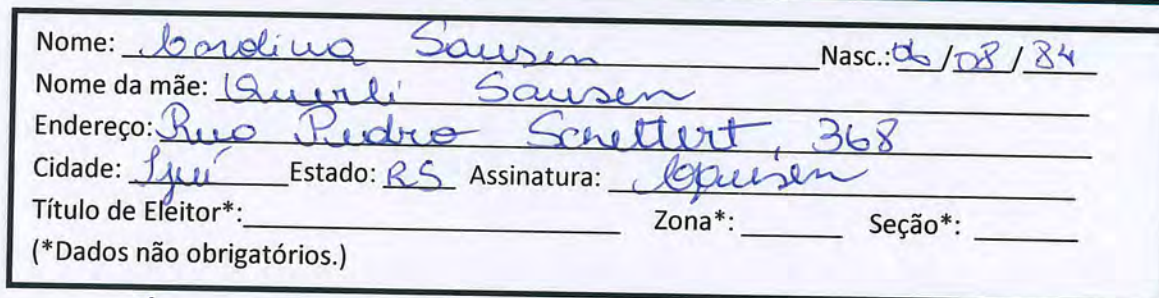 Nome: Carolina Sausen Nasc.: 06/08/84
Nome da mãe: Querli Sausen
Endereço: Rua Pedro Schettert, 368
Cidade: Ijuí Estado: RS Assinatura: CSausen
Título de Eleitor*: Zona*: Seção*:
(*Dados não obrigatórios.)